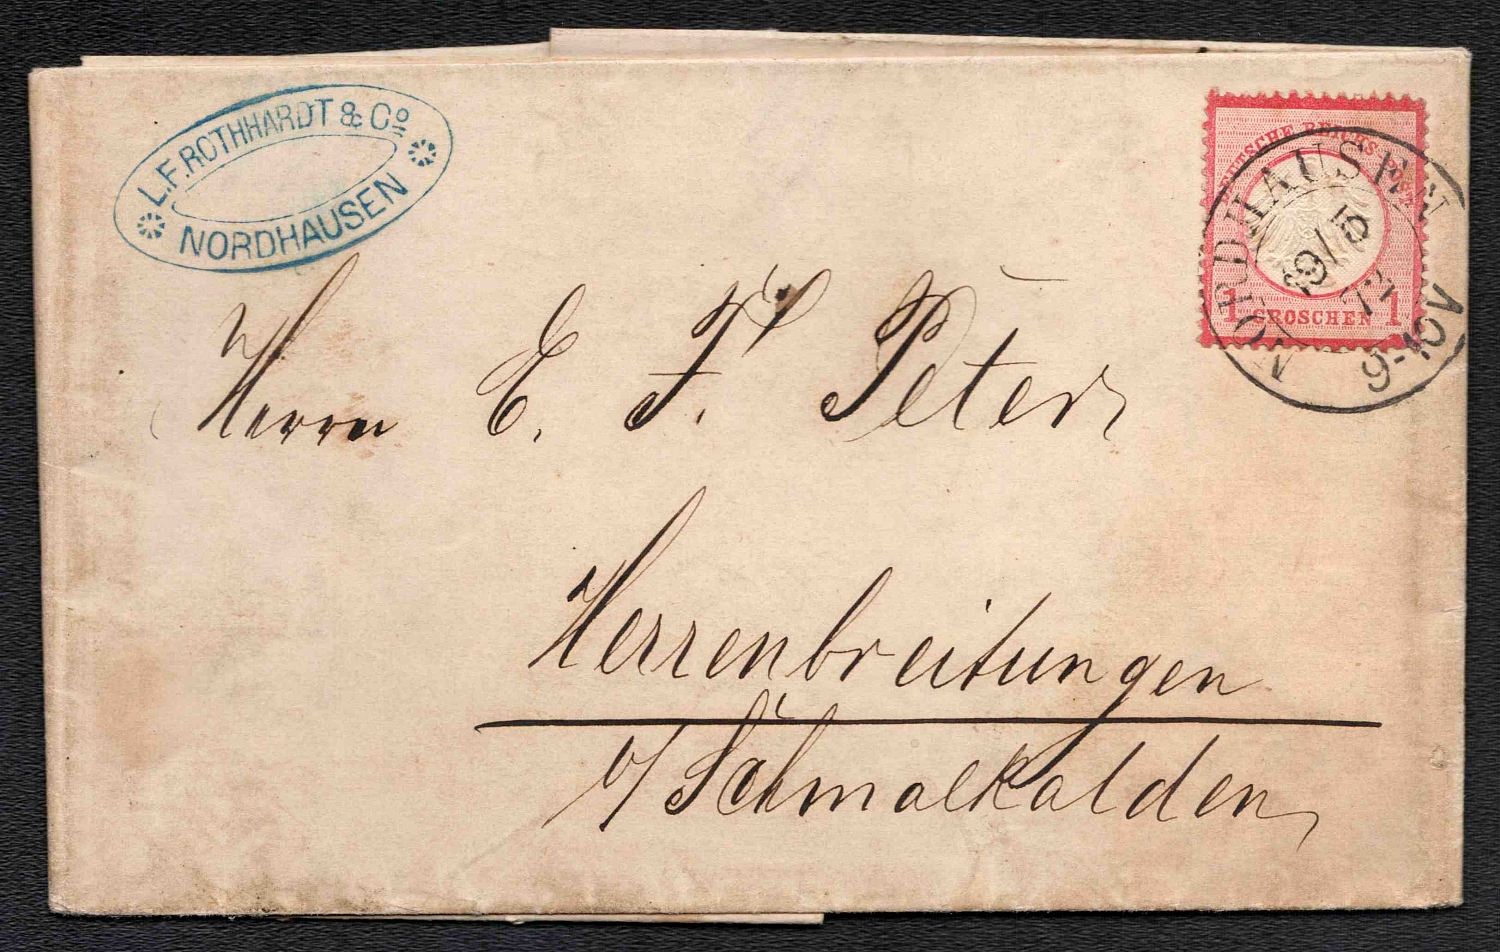 L.F. ROTHHARDT & Co
NORDHAUSEN
DEUTSCHE REICHS-POST
1 GROSCHEN 1
NORDHAUSEN
19/5
72
9-10V
Herrn E. F. Peter
Herrenbreitungen
b/ Schmalkalden